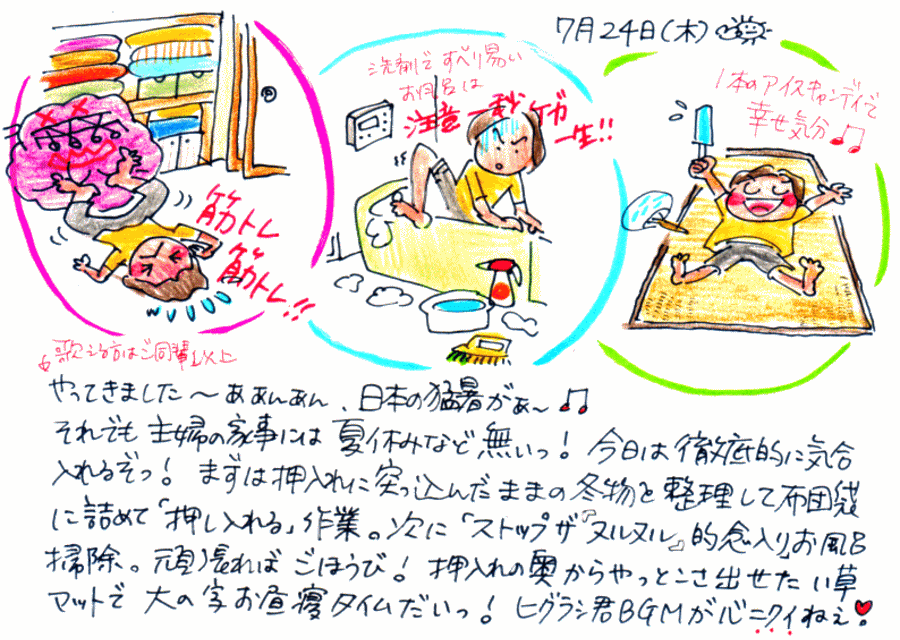 7月24日(木)
洗剤ですべり易い
お風呂は
注意一秒ケガ
一生!!
1本のアイスキャンディで
幸せ気分♪♫
筋トレ
筋トレ!!
歌える方はご同輩以上
やってきました〜ああんあん、日本の猛暑がぁ〜♫
それでも主婦の家事には夏休みなど無いっ!今日は徹底的に気合
入れるぞっ!まずは押入れに突っ込んだままの冬物を整理して布団袋
に詰めて「押し入れる」作業。次に「ストップザ『ヌルヌル』的念入りお風呂
掃除。頑張ればごほうび!押入れの奥からやっとこさ出せたい草
マットで大の字お昼寝タイムだいっ!ヒグラシ君BGMが心ニクイねぇ❤